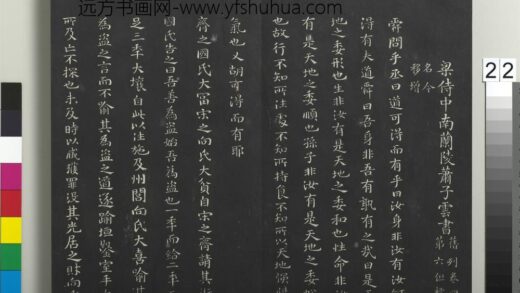 远方书画网-www.yfshuhua.com
22
梁侍中南蘭陵蕭子雲書
名令
移增
舊列卷
第六但
舜問乎丞曰道可得而有乎曰汝身非汝有汝
得有夫道舜曰吾身非吾有孰有之哉曰是
地之委形也生非汝有是天地之委和也性命非
有是天地之委順也孫子非汝有是天地之委
也故行不知所往處不知所持食不知所以天
氣也又胡可得而有耶
齊之國氏大富宋之向氏大貧自宋之齊請其
國氏告之曰吾善為盜始吾為盜也一年而給二年
是三年大壤自此以往施及州閭向氏大喜喻其
為盜之言而不喻其為盜之道遂踰垣鑿室手
所及亡不探也未及時以贓獲罪沒其先居之財向